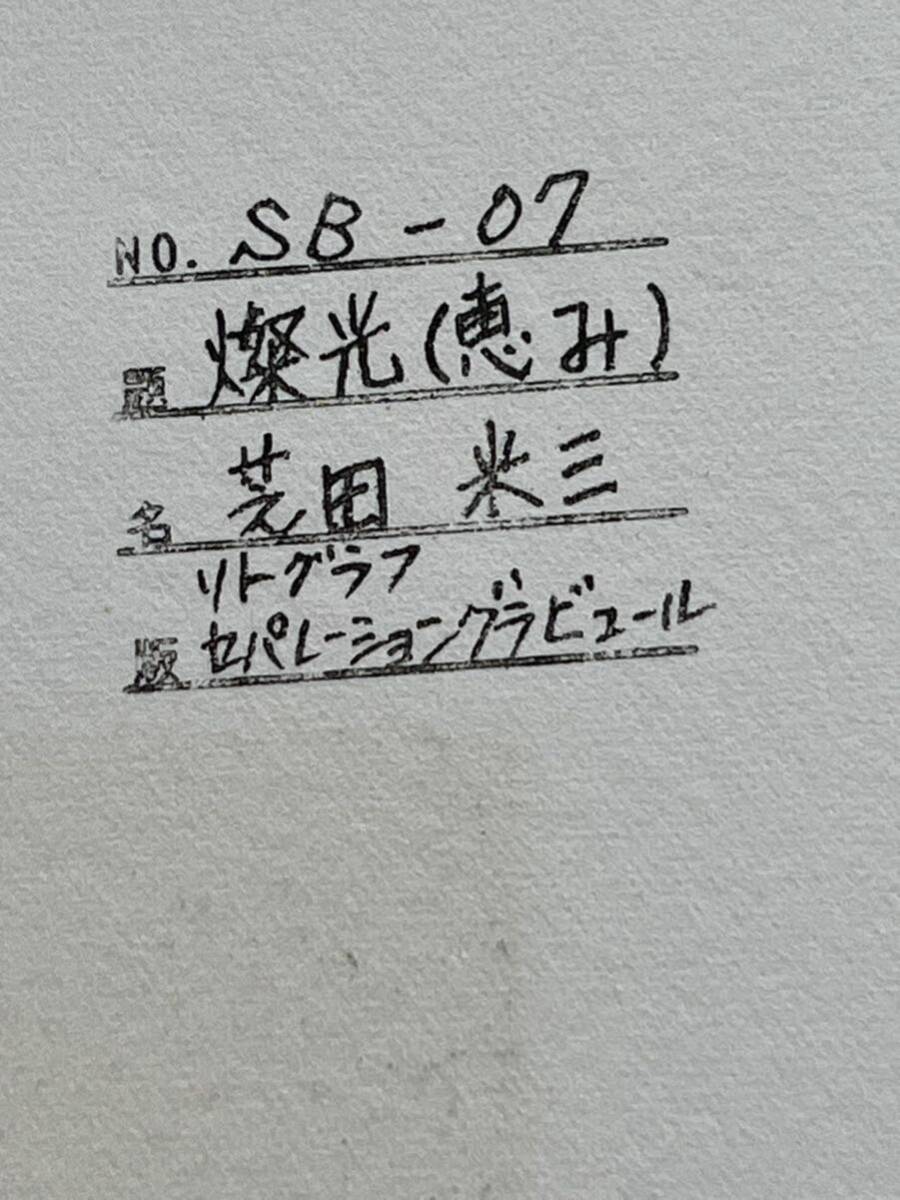 NO. SB-07
題 燦光(恵み)
名 芝田 米三
リトグラフ
版 セパレーショングラビュール